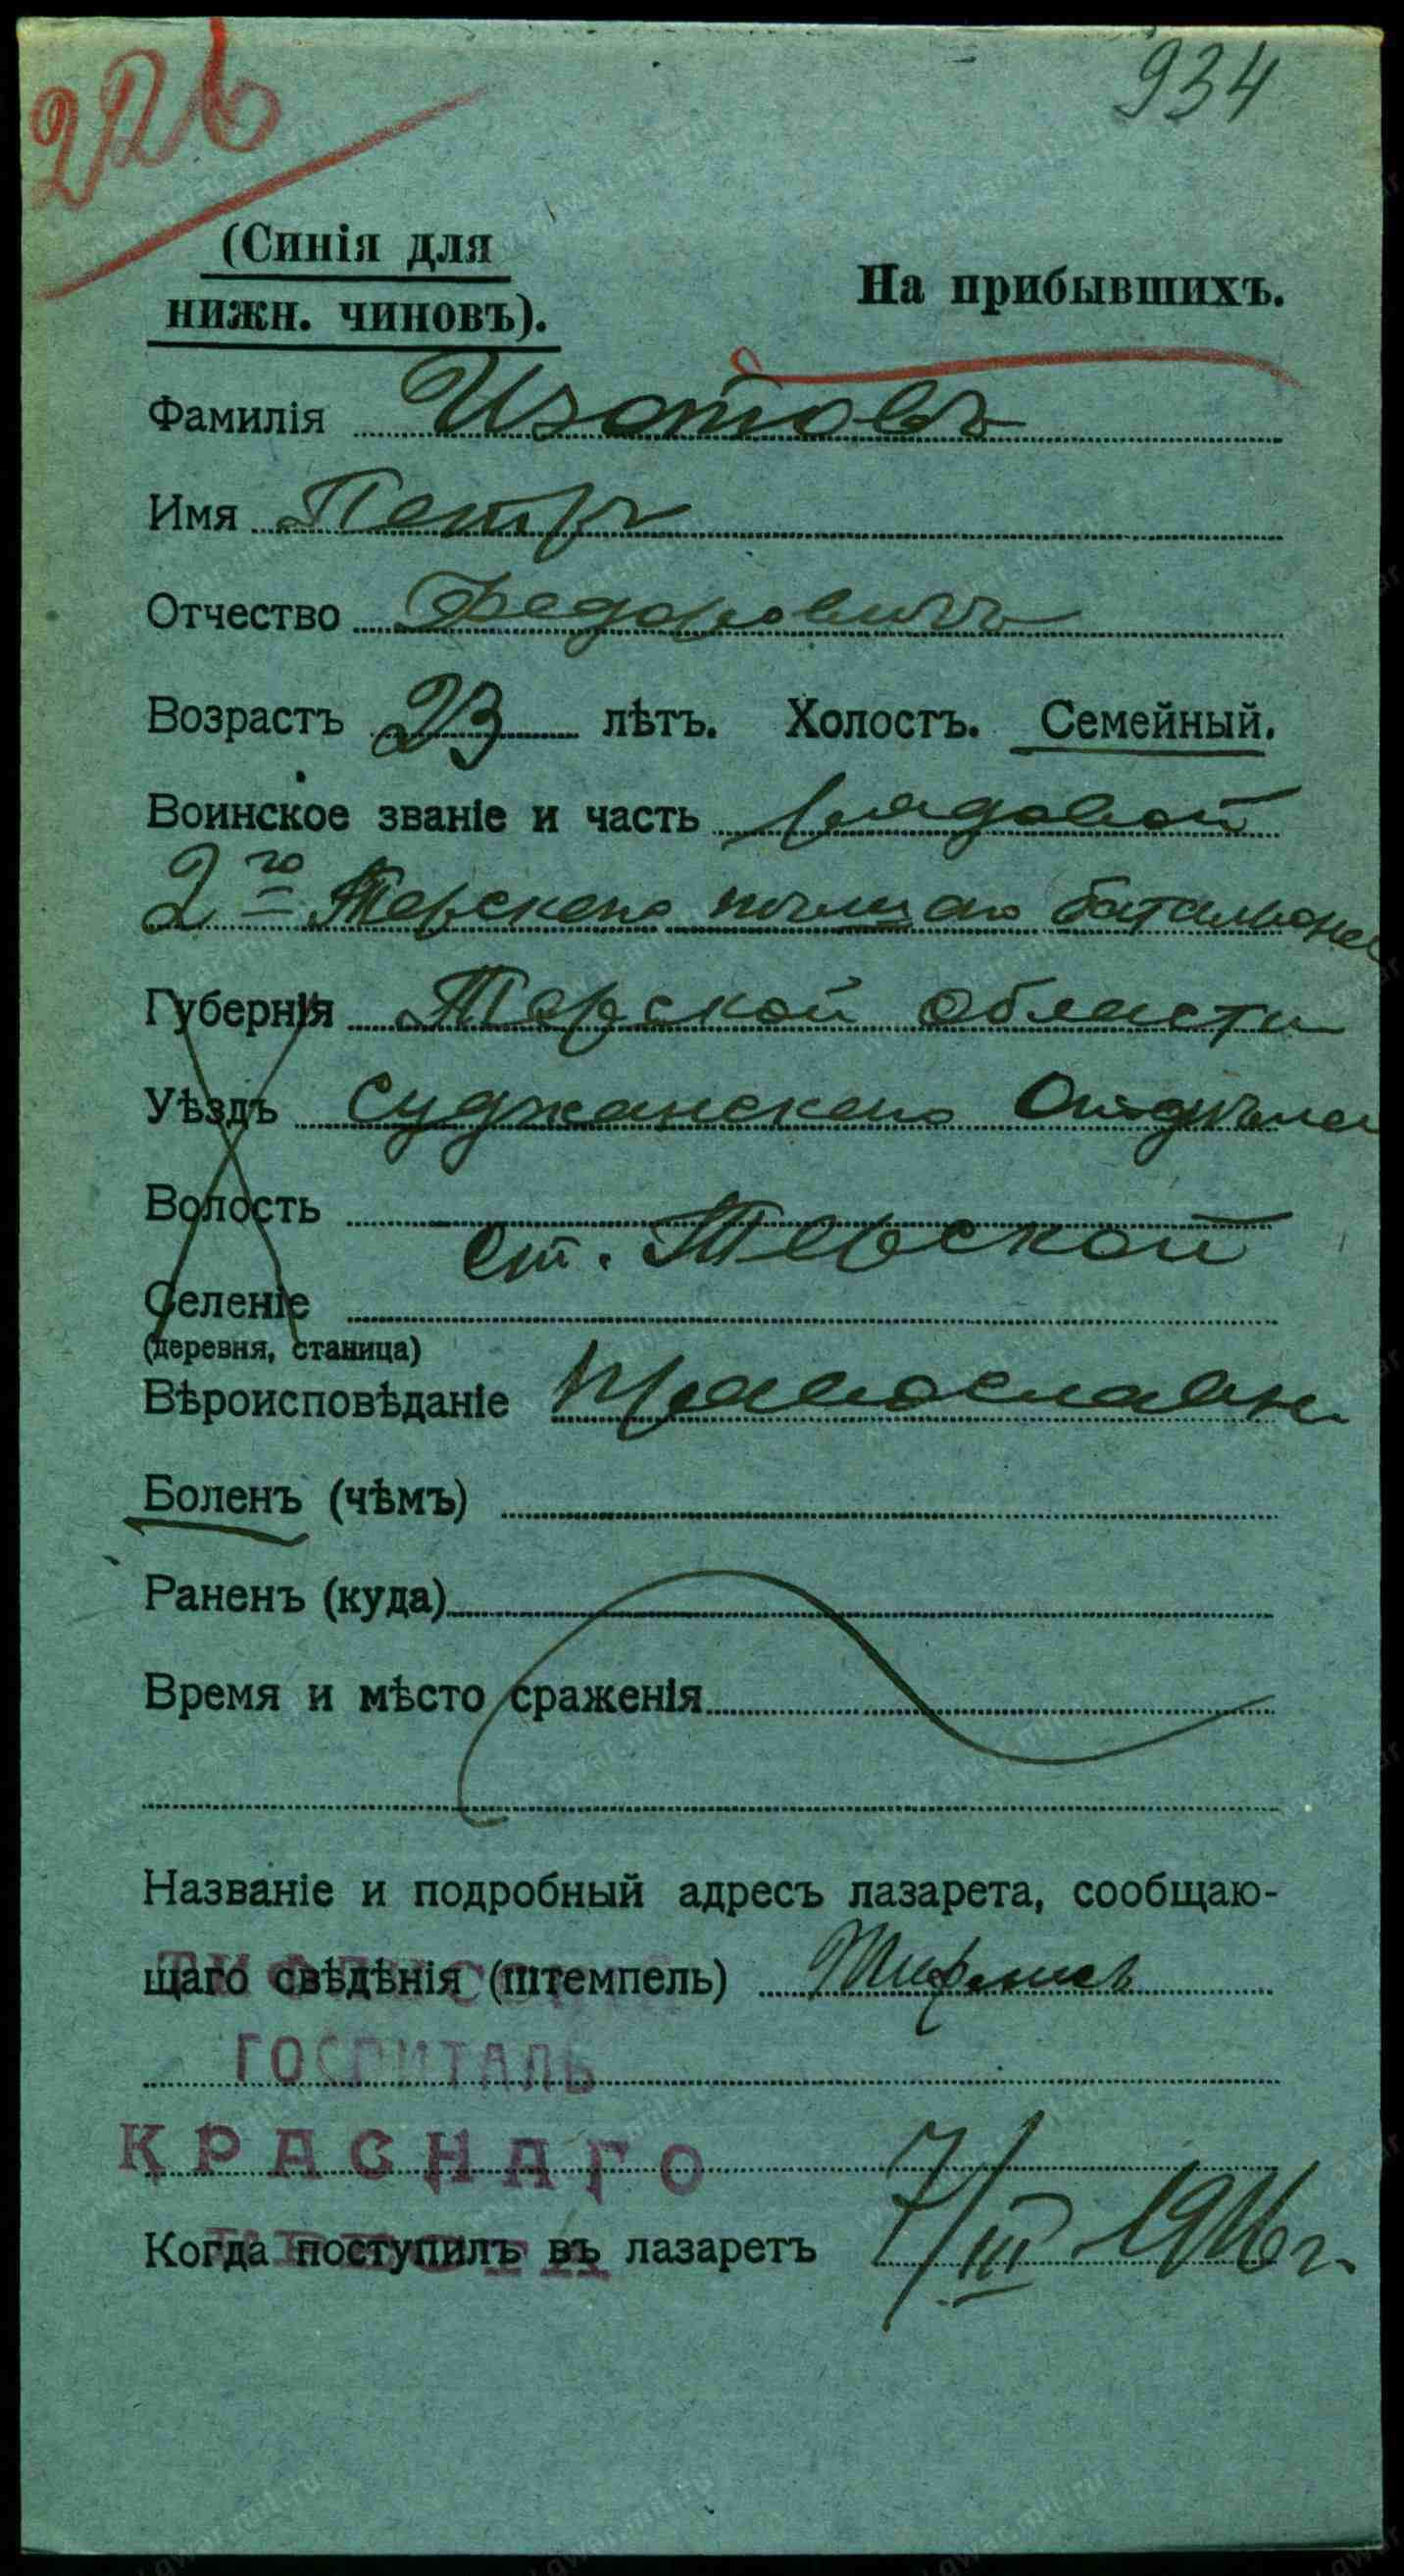 226
934
(Синія для
нижн. чиновъ).
На прибывшихъ.
Фамилія Изотовъ
Имя Петръ
Отчество Федоровичъ
Возрастъ 23 лѣтъ. Холостъ. Семейный.
Воинское званіе и часть рядовой
2го Терскаго батальона
Губернія Терской области
Уѣздъ Суджанскаго Отдѣла
Волость
ст. Терской
Селеніе
(деревня, станица)
Вѣроисповѣданіе Православн
Боленъ (чѣмъ)
Раненъ (куда)
Время и мѣсто сраженія
Названіе и подробный адресъ лазарета, сообщаю-
щаго свѣдѣнія (штемпель) Тифлисъ
ГОСПИТАЛЬ
КРАСНАГО
Когда поступилъ въ лазаретъ 7/III 1916 г.